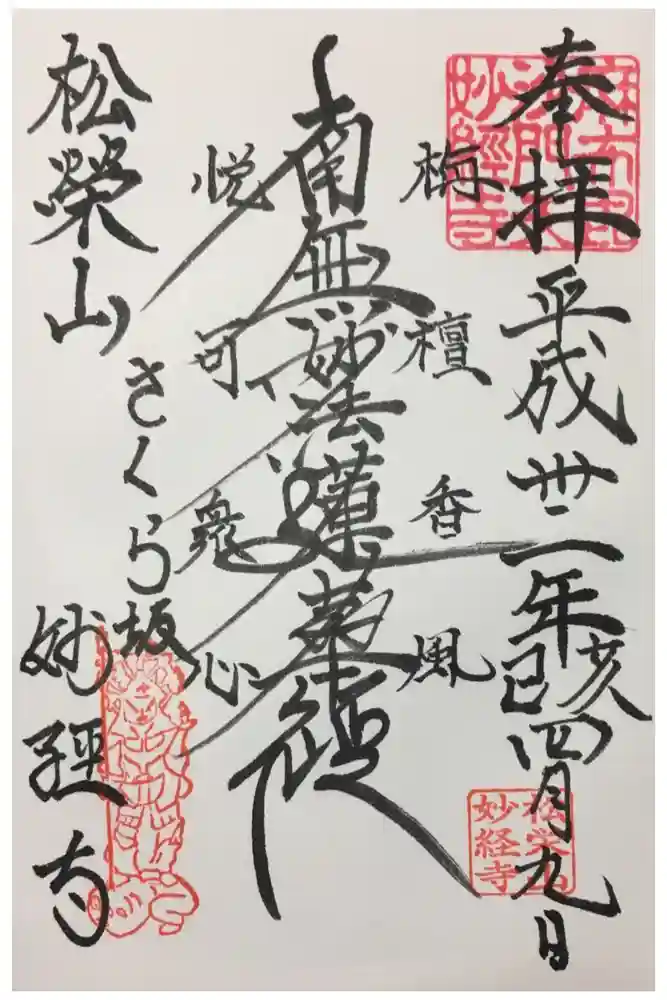 奉拝
平成卅一年己亥四月九日
栴檀香風
南無妙法蓮華経
悦可衆心
さくら坂
松榮山
妙経寺
妙經寺
松栄山
妙経寺